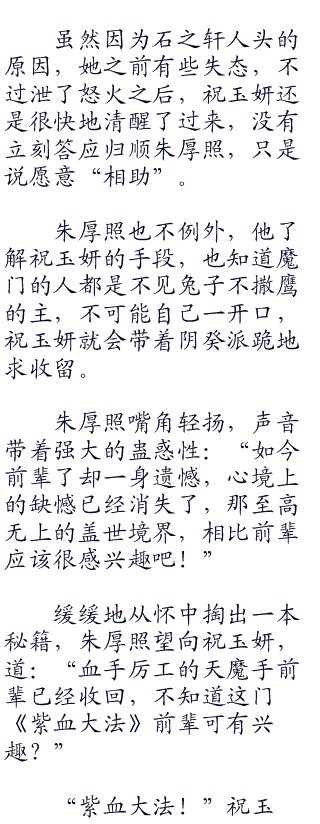 虽然因为石之轩人头的
原因，她之前有些失态，不
过泄了怒火之后，祝玉妍还
是很快地清醒了过来，没有
立刻答应归顺朱厚照，只是
说愿意“相助”。
朱厚照也不例外，他了
解祝玉妍的手段，也知道魔
门的人都是不见兔子不撒鹰
的主，不可能自己一开口，
祝玉妍就会带着阴癸派跪地
求收留。
朱厚照嘴角轻扬，声音
带着强大的蛊惑性：“如今
前辈了却一身遗憾，心境上
的缺憾已经消失了，那至高
无上的盖世境界，相比前辈
应该很感兴趣吧！”
缓缓地从怀中掏出一本
秘籍，朱厚照望向祝玉妍，
道：“血手厉工的天魔手前
辈已经收回，不知道这门
《紫血大法》前辈可有兴
趣？”
“紫血大法！”祝玉